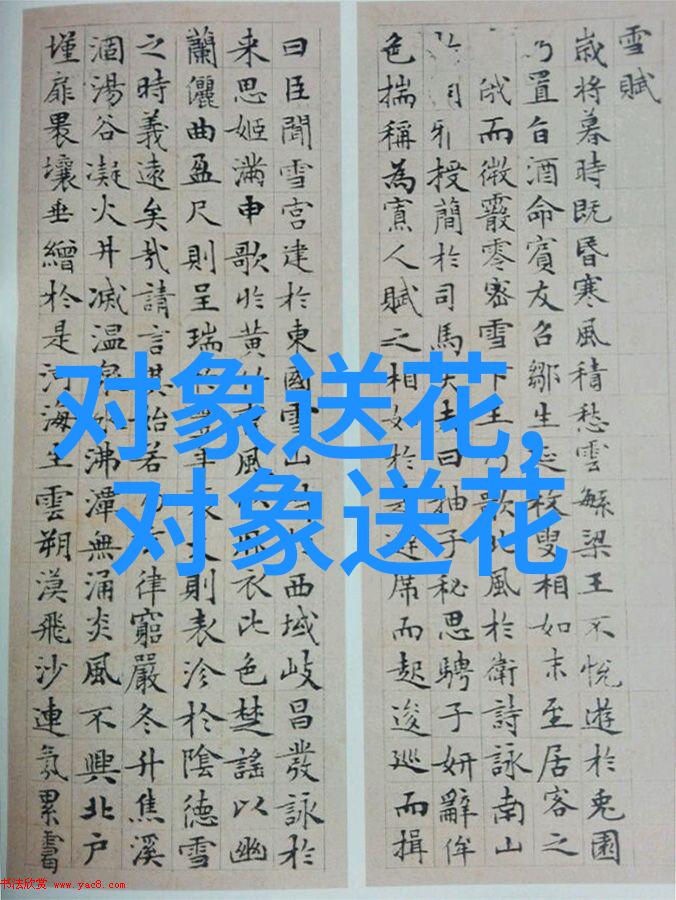 雪賦
歳将暮時既昏寒風積愁雲繁梁王不悅遊於兎園
乃置旨酒命賓友召鄒生延枚叟相如末至居客之
俄而微霰零密雪下王乃歌北風於衛詩詠南山
授簡於司馬大夫曰抽子秘思騁子妍辭侔
色揣稱為寡人賦之相如於是避席而起逡巡而揖
曰臣聞雪宮建於東國雪山西域岐昌發詠於
来思姬滿申歌於黄竹風衣比色楚謠以幽
蘭儷曲盈尺則呈瑞於豐年袤丈則表沴於陰德雪
之時義遠矣哉請言其始若乃玄律窮嚴冬升焦溪
涸湯谷凝火井滅温泉冰沸潭無涌炎風不興北戶
墐扉裸壤垂繒於是河海生雲朔漠飛沙連氛累靄
对象送花,
对象送花
书法欣赏 www.yac8.com